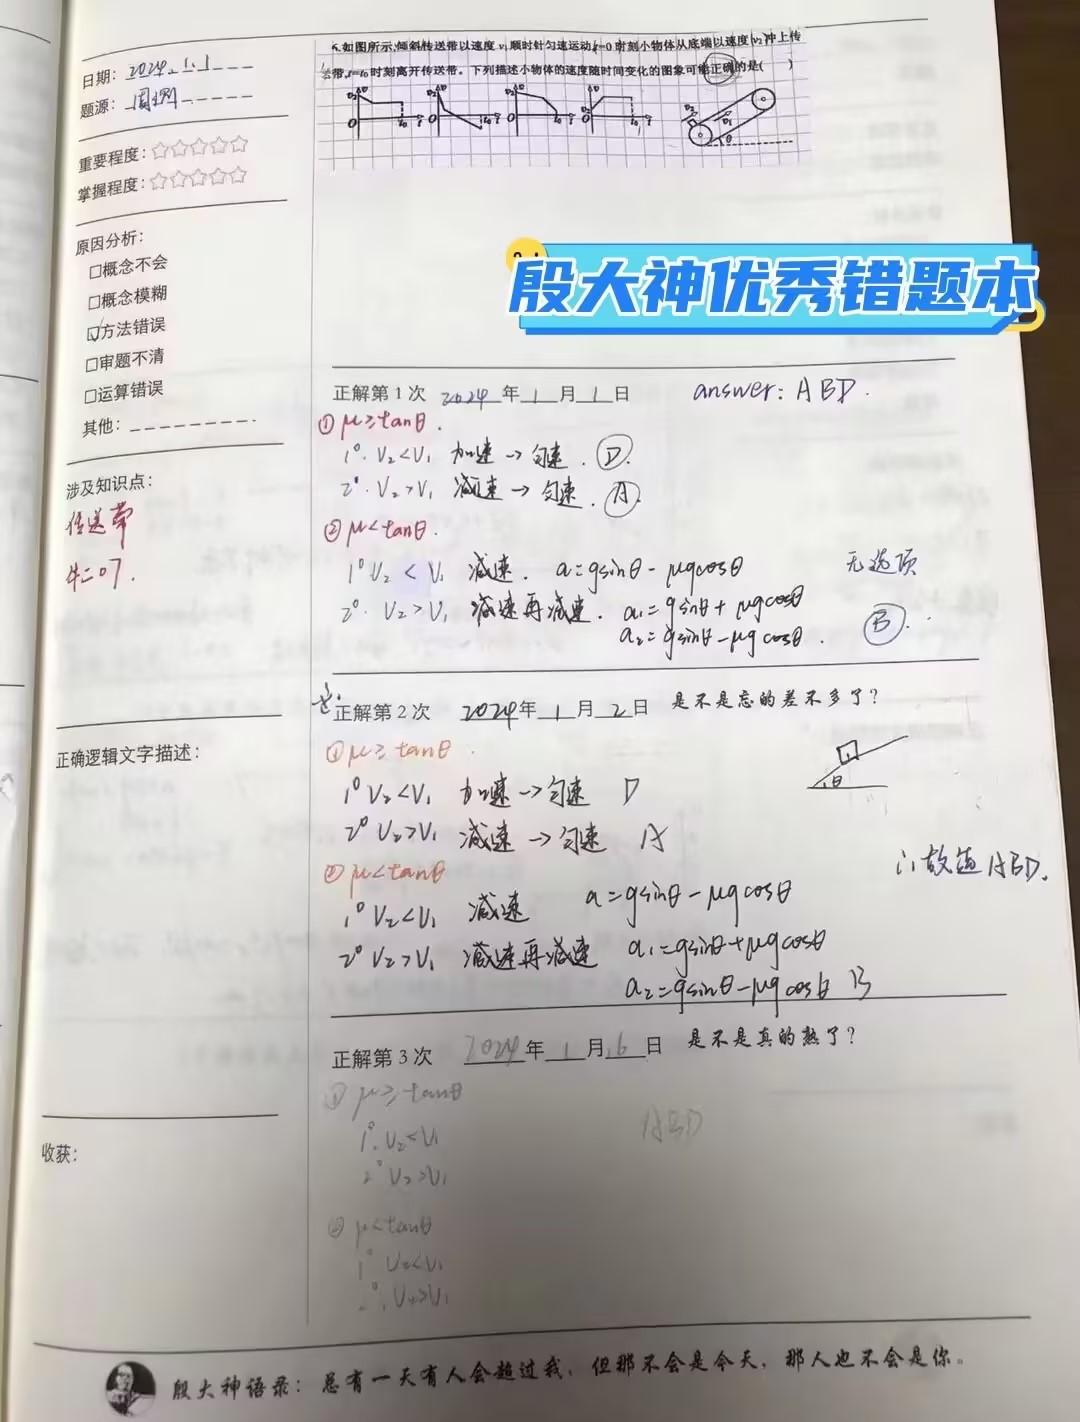 日期：2024.1.1
题源：周测
重要程度：☆☆☆☆☆
掌握程度：☆☆☆☆☆
原因分析：
□概念不会
□概念模糊
☑方法错误
□审题不清
□运算错误
其他：
涉及知识点：
传送带
牛二
正确逻辑文字描述：
收获：
如图所示,倾斜传送带以速度v₁顺时针匀速运动,t=0时刻小物体从底端以速度v₂冲上传
送带,t=t₀时刻离开传送带。下列描述小物体的速度随时间变化的图象可能正确的是( )
殷大神优秀错题本
正解第1次 2024年1月1日 answer: ABD.
① μ≥tanθ.
1°. V₂<V₁ 加速→匀速. D.
2°. V₂>V₁ 减速→匀速. A.
② μ<tanθ.
1° V₂<V₁ 减速. a=gsinθ-μgcosθ 无选项
2°. V₂>V₁ 减速再减速. a₁=gsinθ+μgcosθ
a₂=gsinθ-μgcosθ. B.
正解第2次 2024年1月2日 是不是忘的差不多了?
① μ≥tanθ.
1° V₂<V₁ 加速→匀速 D
2° V₂>V₁ 减速→匀速 A
∴故选ABD.
② μ<tanθ
1° V₂<V₁ 减速 a=gsinθ-μgcosθ
2° V₂>V₁ 减速再减速 a₁=gsinθ+μgcosθ
a₂=gsinθ-μgcosθ B
正解第3次 2024年1月6日 是不是真的熟了?
① μ≥tanθ
1°. V₂<V₁
ABD
2° V₂>V₁
② μ<tanθ
1° V₂<V₁
2°. V₂>V₁
殷大神语录：总有一天有人会超过我，但那不会是今天，那人也不会是你。